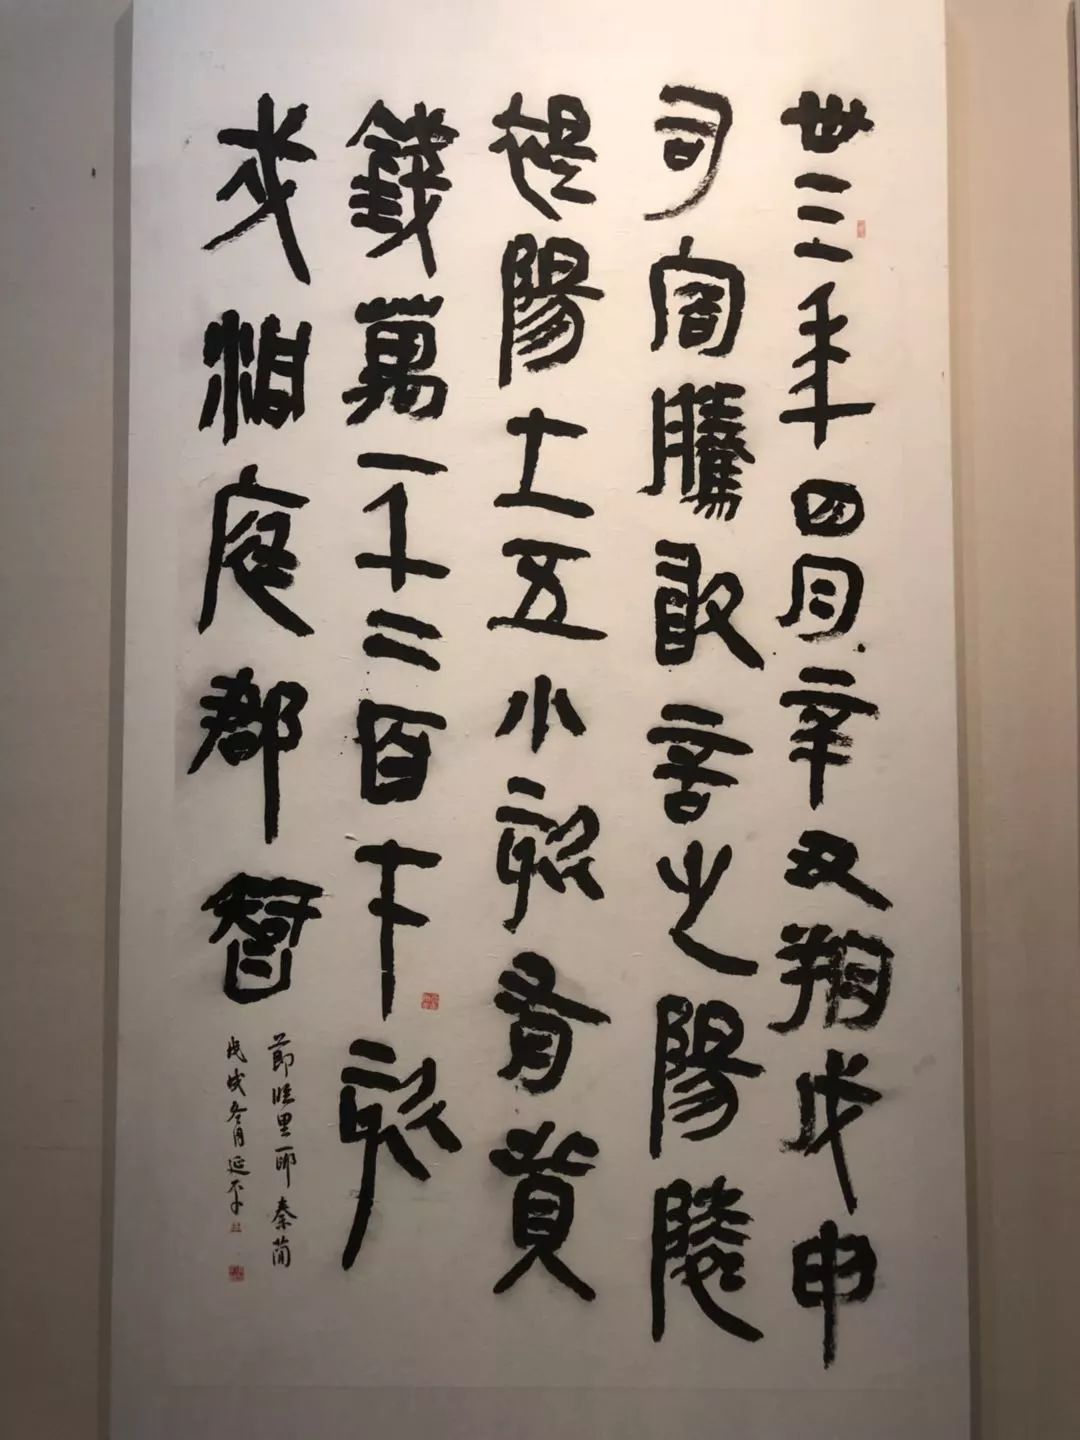 卅三年四月辛丑朔戊申
司空騰敢言之陽陵
褆陽士五小欬有貲
錢萬一千二百欬
戍洞庭郡智
節臨里耶秦簡
戊戌冬月延